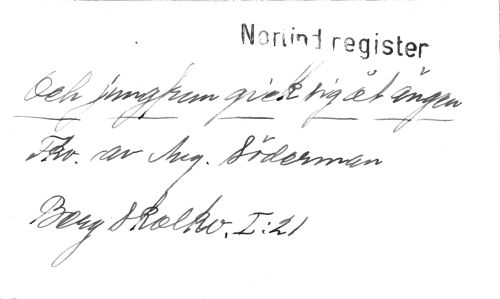 Norlind register
Och jungfrun gick sig åt ängen
Tkv. av Aug. Söderman
Berg Skolkv. I:21